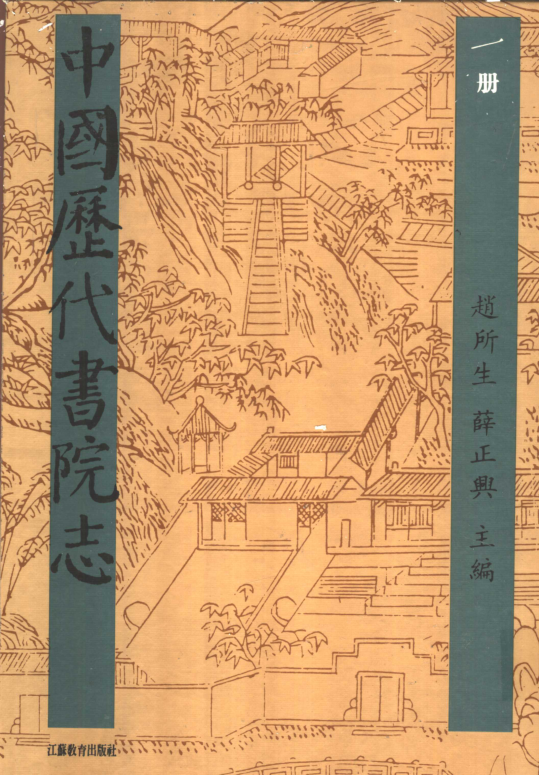 中國歷代書院志
一册
趙所生 薛正興 主編
江蘇教育出版社